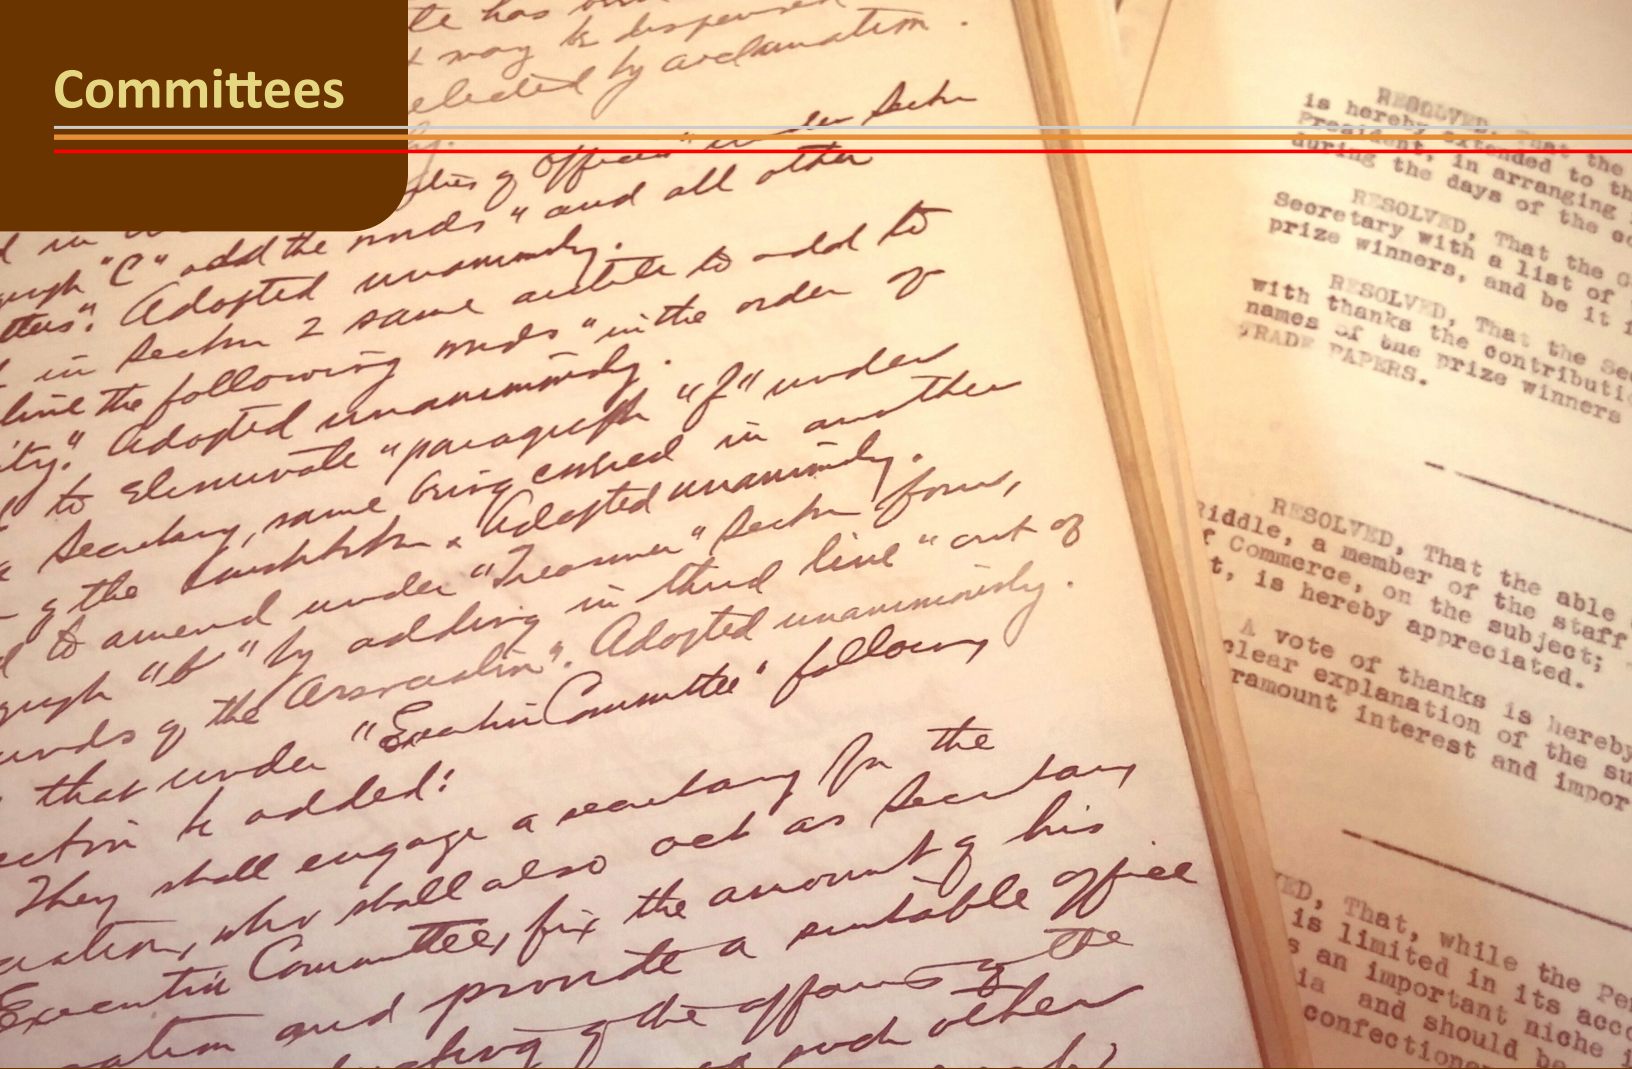 Committees
te has
may be dispensed
elected by acclamation.
ties of Officers" under Section
d in
"C" add the words "and all other
tters". Adopted unanimously.
in Section 2 same article to add to
line the following words "in the order of
ity." Adopted unanimously.
to eliminate "paragraph "f" under
Secretary, same being covered in another
g the constitution. Adopted unanimously.
to amend under "Treasurer" Section four,
"b" by adding in third line "out of
unds of the Association". Adopted unanimously.
that under "Executive Committee" following
ection be added:
They shall engage a secretary for the
ciation, who shall also act as Secretary
Executive Committee, fix the amount of his
and provide a suitable office
of the affairs of the
such other
RESOLVED, That the
is hereby extended to th
President, in arranging
during the days of the co
RESOLVED, That the
Secretary with a list of
prize winners, and be it
RESOLVED, That the Sec
with thanks the contributi
names of the prize winners
TRADE PAPERS.
RESOLVED, That the able
Riddle, a member of the staff
f Commerce, on the subject;
t, is hereby appreciated.
A vote of thanks is hereby
clear explanation of the su
ramount interest and impor
ED, That, while the Pe
is limited in its acco
s an important niche i
ia and should be
confectione